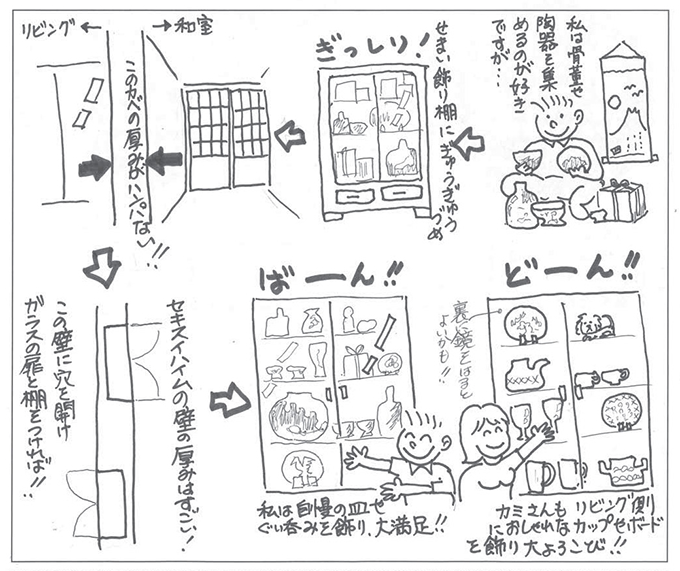 私は骨董や
陶器を集
めるのが好き
ですが…
せまい飾り棚にぎゅうぎゅう
づめ
ぎっしり!
リビング← →和室
このカベの厚みがハンパない!!
セキスイハイムの壁の厚みはすごい!
この壁に穴を開け
ガラスの扉と棚をつければ!!
ばーん!!
私は自慢の皿や
ぐい呑みを飾り、大満足!!
どーん!!
裏に鏡をはると
よいかも!!
カミさんも リビング側
におしゃれなカップやボード
を飾り 大よろこび!!